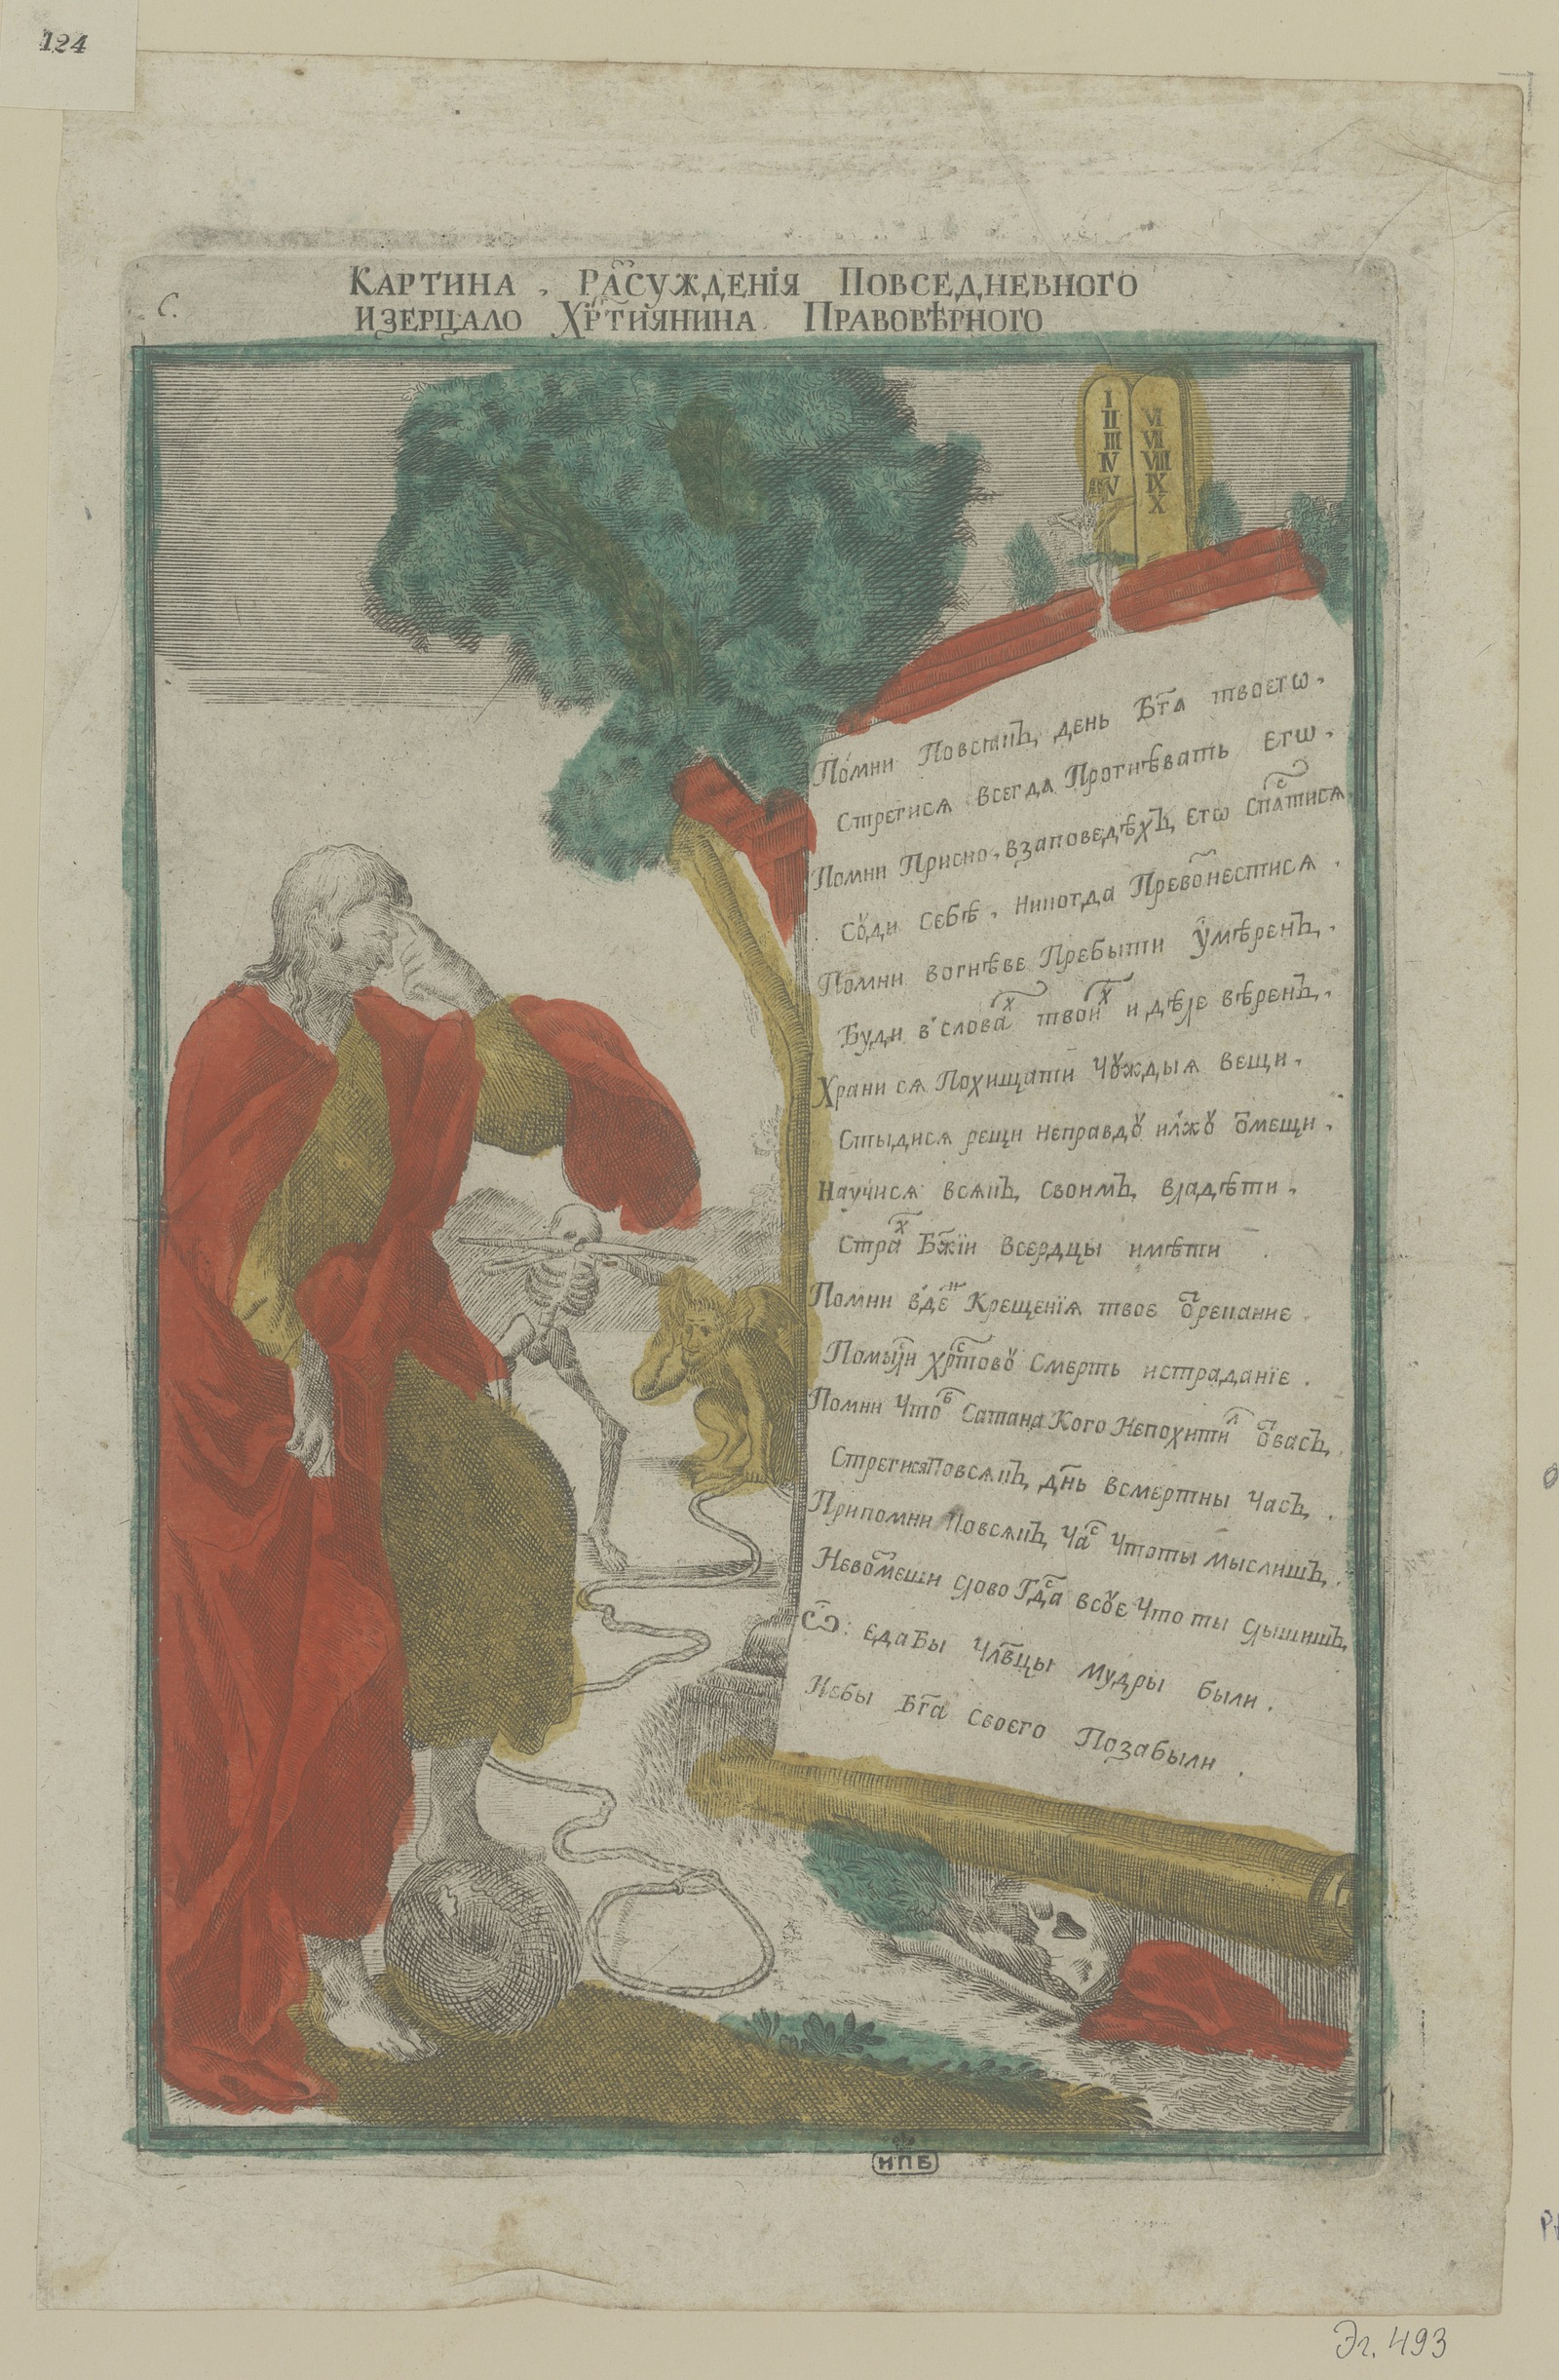 124
Картина . Расужденїя Повседневного
С.
изерцало Хртиянина Правовѣрного
I
II
III
IV
V
VI
VII
VIII
IX
X
Помни Повсѧкъ день Бга твоегѡ.
Стрегисѧ всегда Прогнѣвать егѡ.
Помни Присно. взаповедѣхъ егѡ спастисѧ
Сꙋди себѣ. никогда Превознестисѧ.
Помни вогнѣве Пребыти ꙋмѣренъ.
Буди в словах твоих и дѣле вѣренъ.
Храни сѧ Похищати Чꙋждыѧ вещи.
Стыдисѧ рещи неправдꙋ илжꙋ ѿмещи.
Научисѧ всѧкъ своимъ владѣти.
Страх Бжїи всердцы имѣти.
Помни вден Крещенїѧ твое ѿрецание.
Помысли хрстовꙋ Смерть истраданїе.
Помни Чтоб Сатана Кого Непохитил ѿвасъ.
СтрегисяПовсѧкъ днь всмертны Часъ.
Припомни Повсѧкъ Час Чтоты мыслишъ.
Невозмеши слово Гдса всꙋе Что ты слышишъ
Ѽ: едабы Члвцы мудры были.
Небы Бга своего Позабыли.
НПБ
Эл. 493